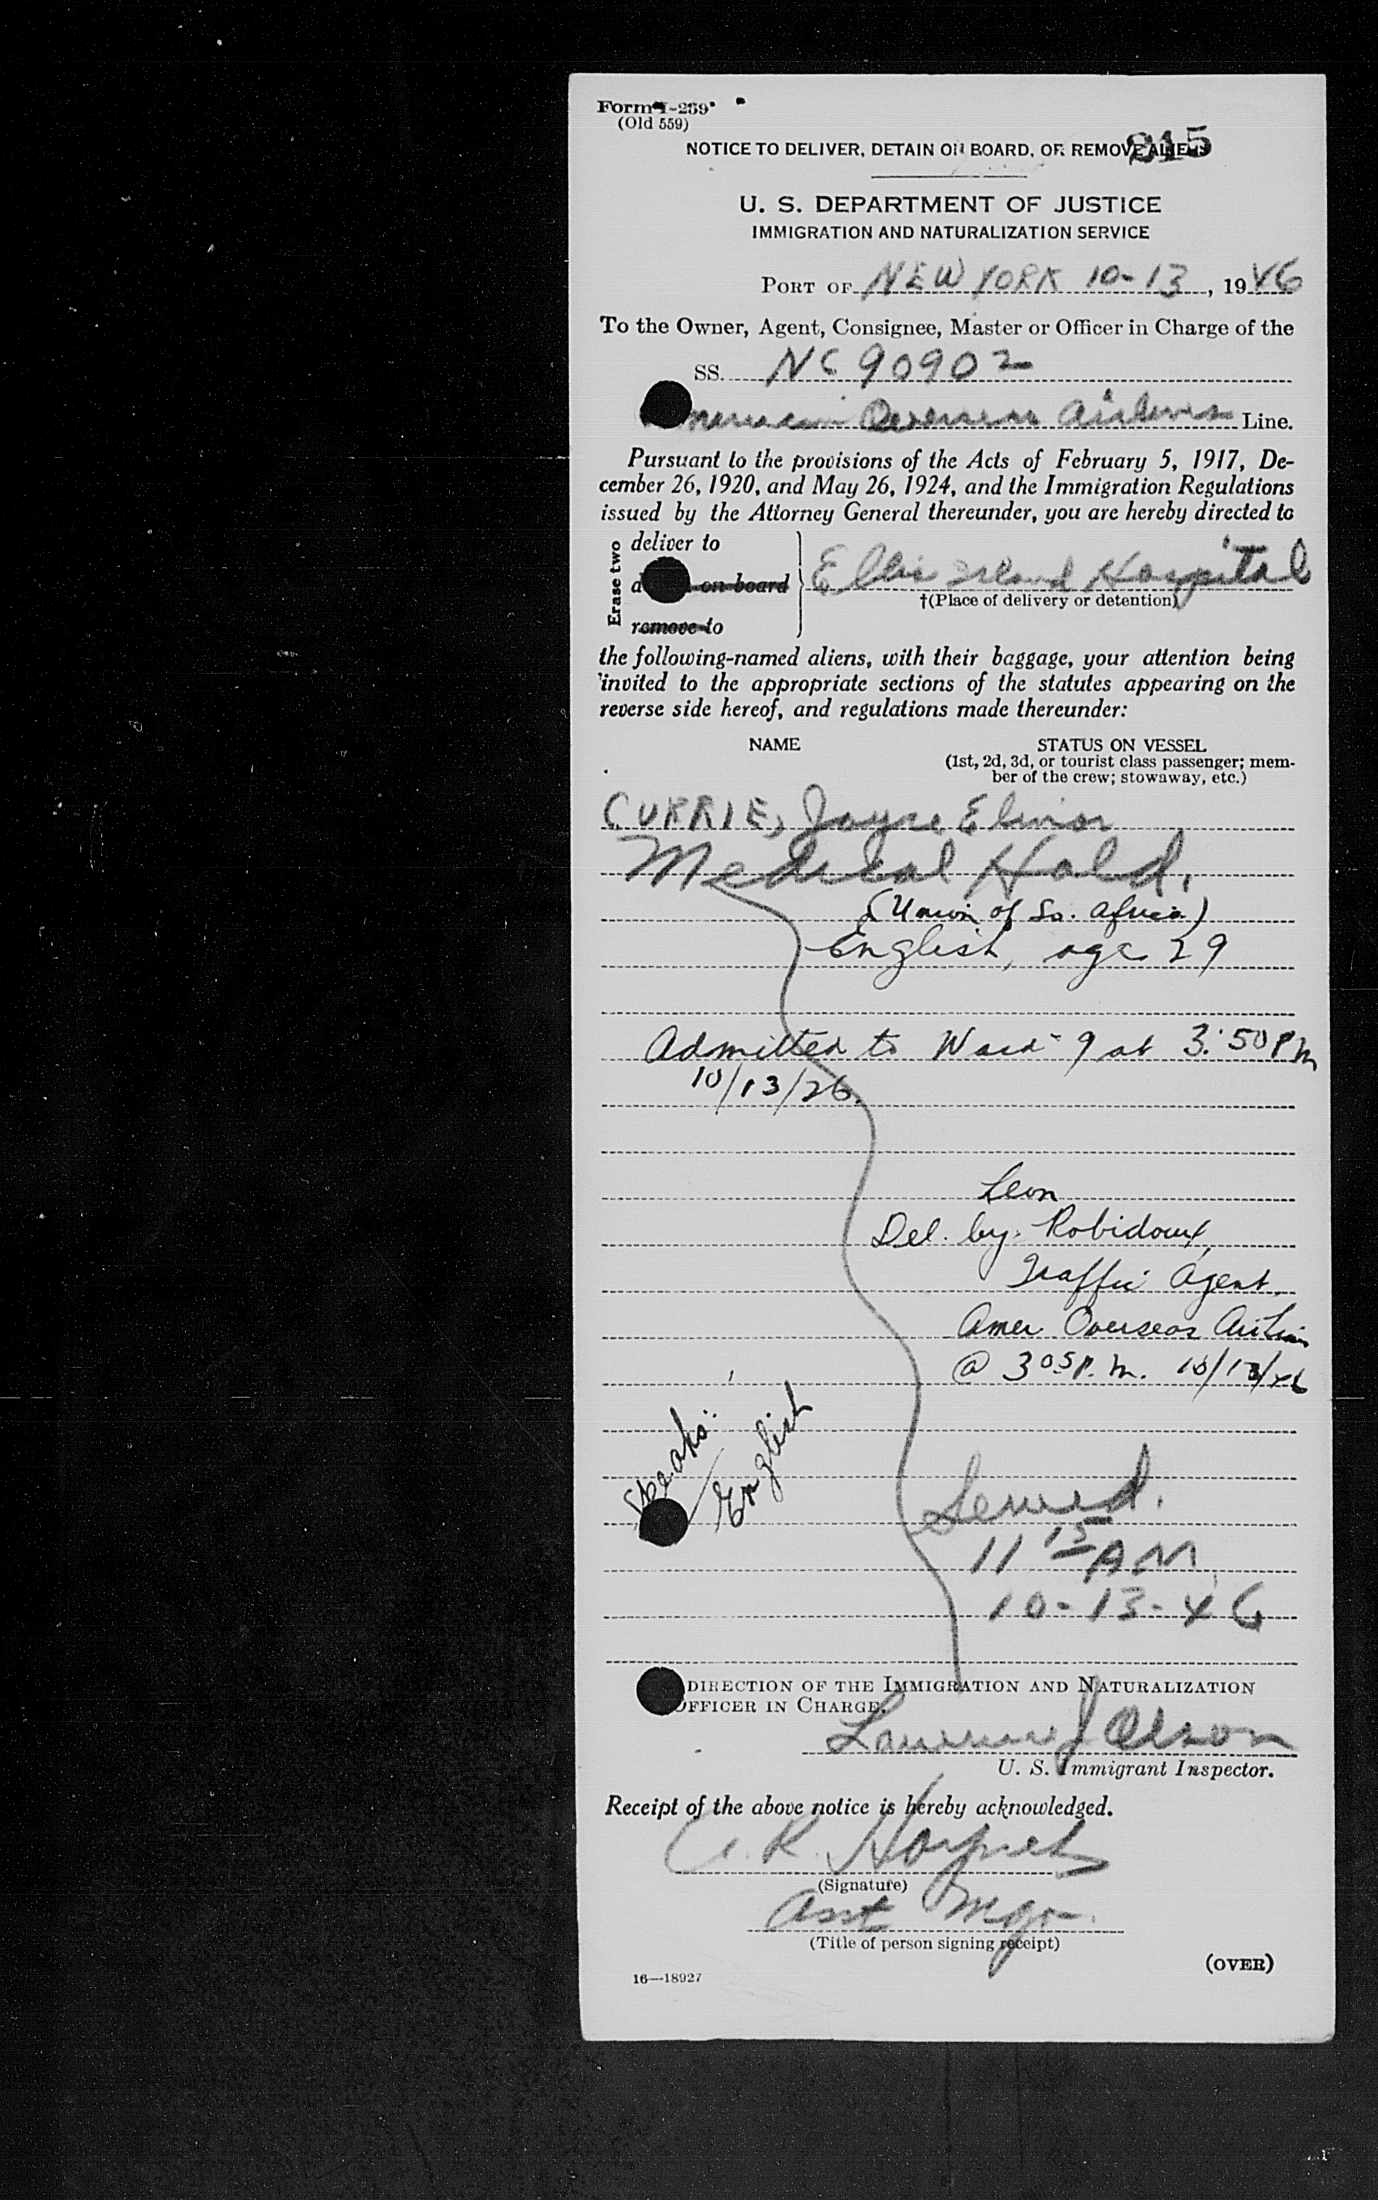 Form I-259
(Old 559)
215
NOTICE TO DELIVER, DETAIN ON BOARD, OR REMOVE ALIENS
U. S. DEPARTMENT OF JUSTICE
IMMIGRATION AND NATURALIZATION SERVICE
PORT OF NEW YORK 10-13, 1946
To the Owner, Agent, Consignee, Master or Officer in Charge of the
SS. NC 90902
American Overseas Airlines Line.
Pursuant to the provisions of the Acts of February 5, 1917, De-
cember 26, 1920, and May 26, 1924, and the Immigration Regulations
issued by the Attorney General thereunder, you are hereby directed to
Erase two
deliver to
on board
remove to
Ellis Island Hospital
†(Place of delivery or detention)
the following-named aliens, with their baggage, your attention being
invited to the appropriate sections of the statutes appearing on the
reverse side hereof, and regulations made thereunder:
NAME STATUS ON VESSEL
(1st, 2d, 3d, or tourist class passenger; mem-
ber of the crew; stowaway, etc.)
CURRIE, Joyce Elinor
Medical Hold.
(Union of So. Africa)
English, age 29
Admitted to Ward-9 at 3:50 PM
10/13/26.
Leon
Del. by: Robidoux,
Traffic Agent,
Amer Overseas Airlines
@ 305 P.M. 10/13/46
Speaks:
English
Served.
11 15 AM
10-13-46
DIRECTION OF THE IMMIGRATION AND NATURALIZATION
OFFICER IN CHARGE.
Lawrence J Olson
U. S. Immigrant Inspector.
Receipt of the above notice is hereby acknowledged.
R.
(Signature)
Asst Mgr.
(Title of person signing receipt)
(OVER)
16—18927